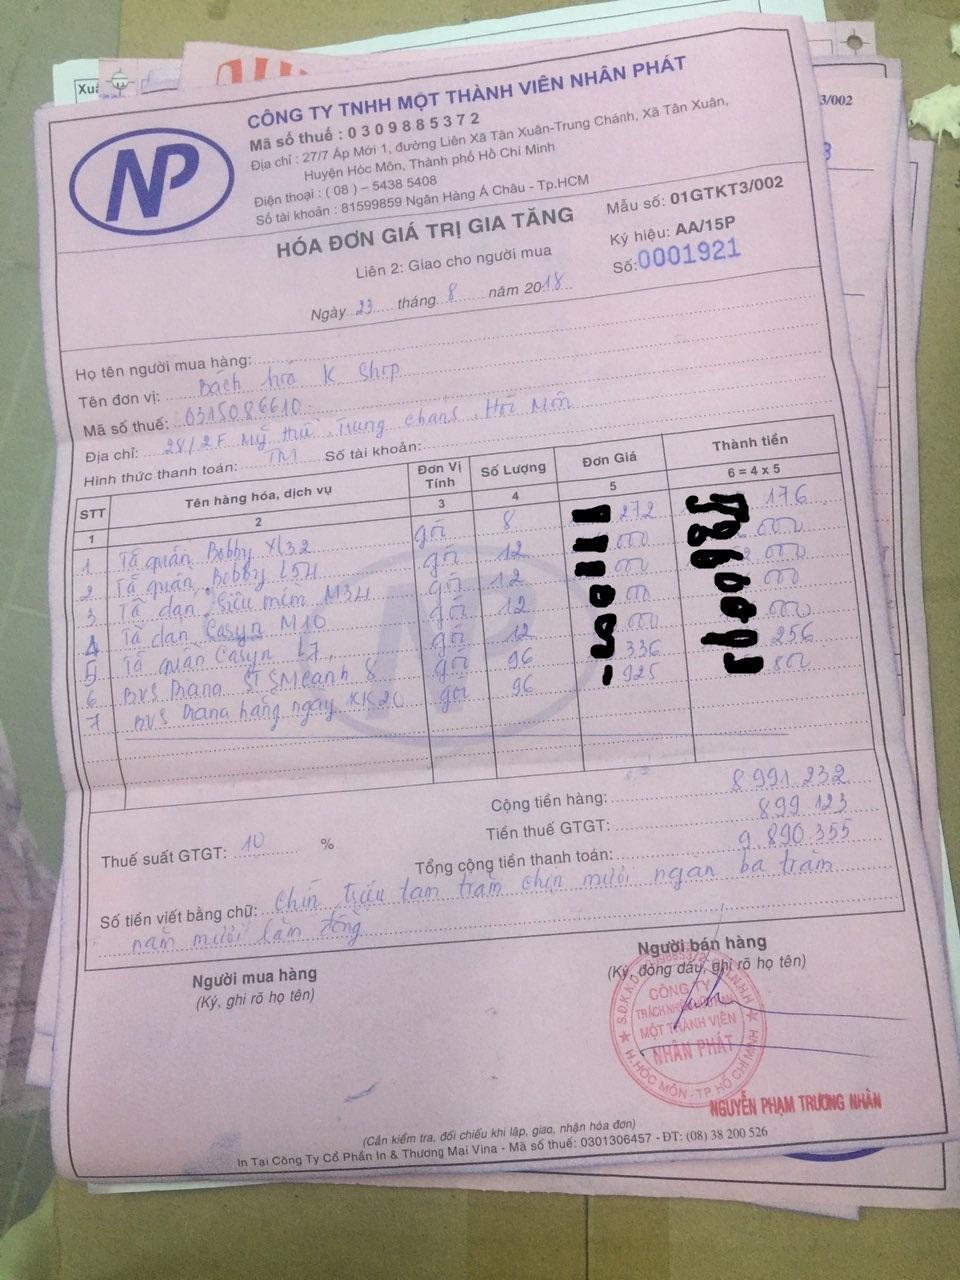 Xuấ
3/002
3
NP
CÔNG TY TNHH MỘT THÀNH VIÊN NHÂN PHÁT
Mã số thuế : 0 3 0 9 8 8 5 3 7 2
Địa chỉ : 27/7 Ấp Mới 1, đường Liên Xã Tân Xuân-Trung Chánh, Xã Tân Xuân,
Huyện Hóc Môn, Thành phố Hồ Chí Minh
Điện thoại : ( 08 ) – 5438 5408
Số tài khoản : 81599859 Ngân Hàng Á Châu - Tp.HCM
HÓA ĐƠN GIÁ TRỊ GIA TĂNG
Mẫu số: 01GTKT3/002
Liên 2: Giao cho người mua
Ký hiệu: AA/15P
Ngày 23 tháng 8 năm 2018
Số: 0001921
Họ tên người mua hàng:
Tên đơn vị: Bách hóa K Shop
Mã số thuế: 0315086610
Địa chỉ: 28/2F Mỹ Huề, Trung Chánh, Hóc Môn
Hình thức thanh toán: TM Số tài khoản:
STT Tên hàng hóa, dịch vụ Đơn Vị Tính Số Lượng Đơn Giá Thành tiền
1 2 3 4 5 6 = 4 x 5
1 Tã quần Bobby XL32 gói 8 272 176
2 Tã quần Bobby L54 gói 12 000 000
3 Tã dán Siêu mềm M34 gói 12 000 000
4 Tã dán Casyn M10 gói 12 000 000
5 Tã quần Casyn L7 gói 12 000 000
6 BVS Diana gói 96 336 256
7 BVS Diana hàng ngày gói 96 925 800
Cộng tiền hàng: 8 991 232
Thuế suất GTGT: 10 % Tiền thuế GTGT: 899 123
Tổng cộng tiền thanh toán: 9.890.355
Số tiền viết bằng chữ: Chín triệu tám trăm chín mươi ngàn ba trăm
năm mươi lăm đồng
Người mua hàng
(Ký, ghi rõ họ tên)
Người bán hàng
(Ký, đóng dấu, ghi rõ họ tên)
CÔNG TY
TRÁCH NHIỆM HỮU HẠN
MỘT THÀNH VIÊN
NHÂN PHÁT
H. HÓC MÔN - TP HỒ CHÍ MINH
NGUYỄN PHẠM TRƯƠNG NHÂN
(Cần kiểm tra, đối chiếu khi lập, giao, nhận hóa đơn)
In Tại Công Ty Cổ Phần In & Thương Mại Vina - Mã số thuế: 0301306457 - ĐT: (08) 38 200 526